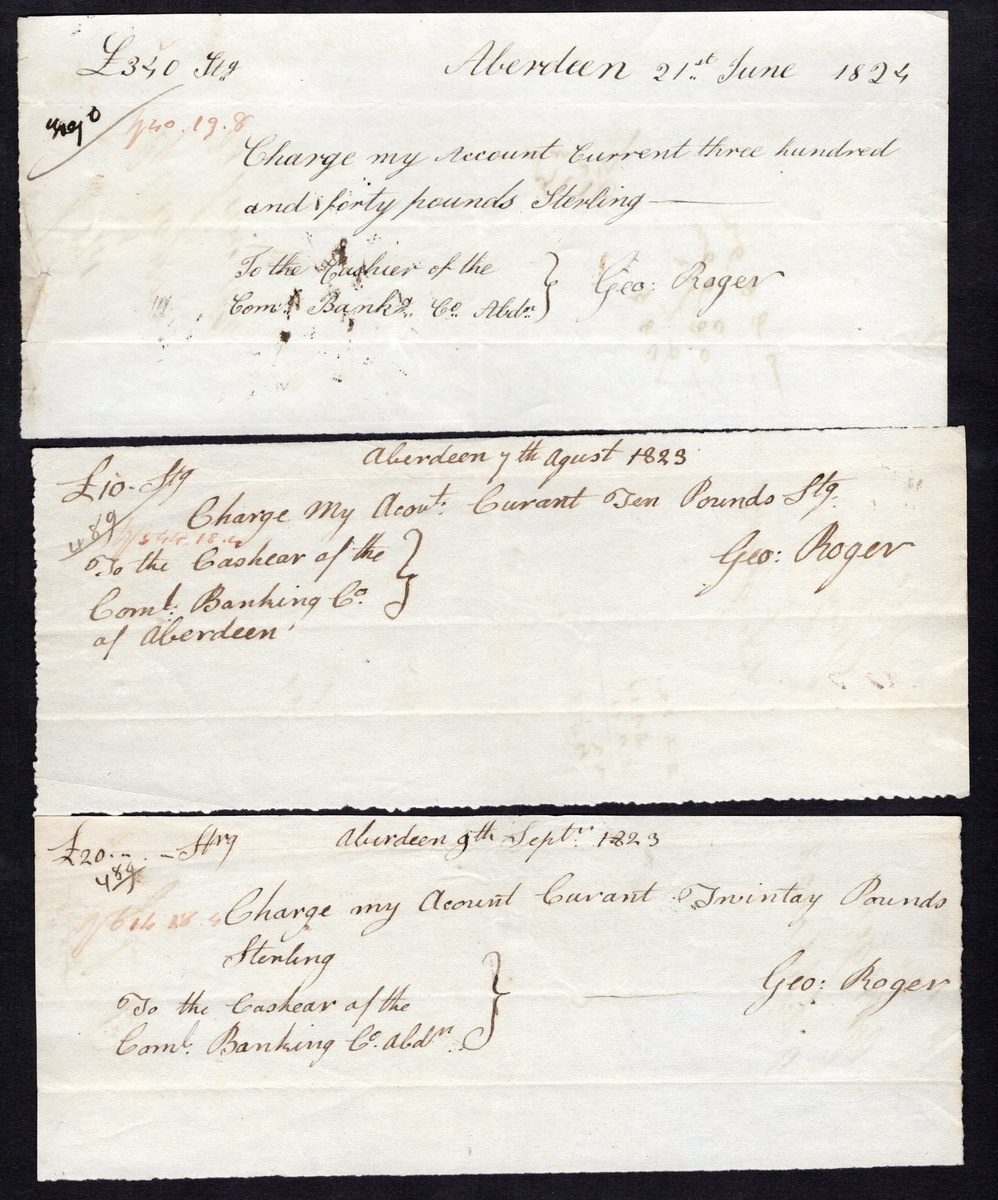 £340 Stg Aberdeen 21st June 1824
Charge my Account Current three hundred
and forty pounds Sterling
To the Cashier of the
Coml. Bankg. Co. Abdn. } Geo: Roger
Aberdeen 7th Agust 1823
£10 - Stg
Charge My Acout. Curant Ten Pounds Stg.
489
To the Cashear of the } Geo: Roger
Coml. Banking Co.
of Aberdeen
£20 - . - Strg Aberdeen 9th Septr. 1823
489
Charge my Acount Curant Twintay Pounds
Sterling
To the Cashear of the } Geo: Roger
Coml. Banking Co. Abdn.